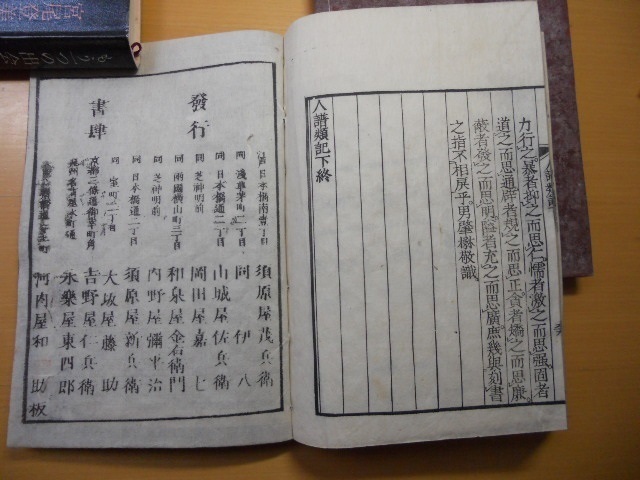 力行之暴者抑之而思仁懦者激之而思强固者
道之而思通辟者規之而思正貪者 之而思廉
蔽者發之而思明隘者充之而思廣庶幾與刻書
之指不相戾乎男肇 敬識
人譜類記下終
發行
書肆
江戸日本橋南壹丁目 須原屋茂兵衛
同 淺草茅町二丁目 同 伊八
同 日本橋通二丁目 山城屋佐兵衛
同 芝神明前 岡田屋嘉七
同 兩國橫山町三丁目 和泉屋金右衛門
同 芝神明前 内野屋彌平治
同 日本橋通二丁目 須原屋新兵衛
同 室町二丁目 大坂屋藤助
京都三條通御幸町角 吉野屋仁兵衛
永樂屋東四郎
河内屋和助板